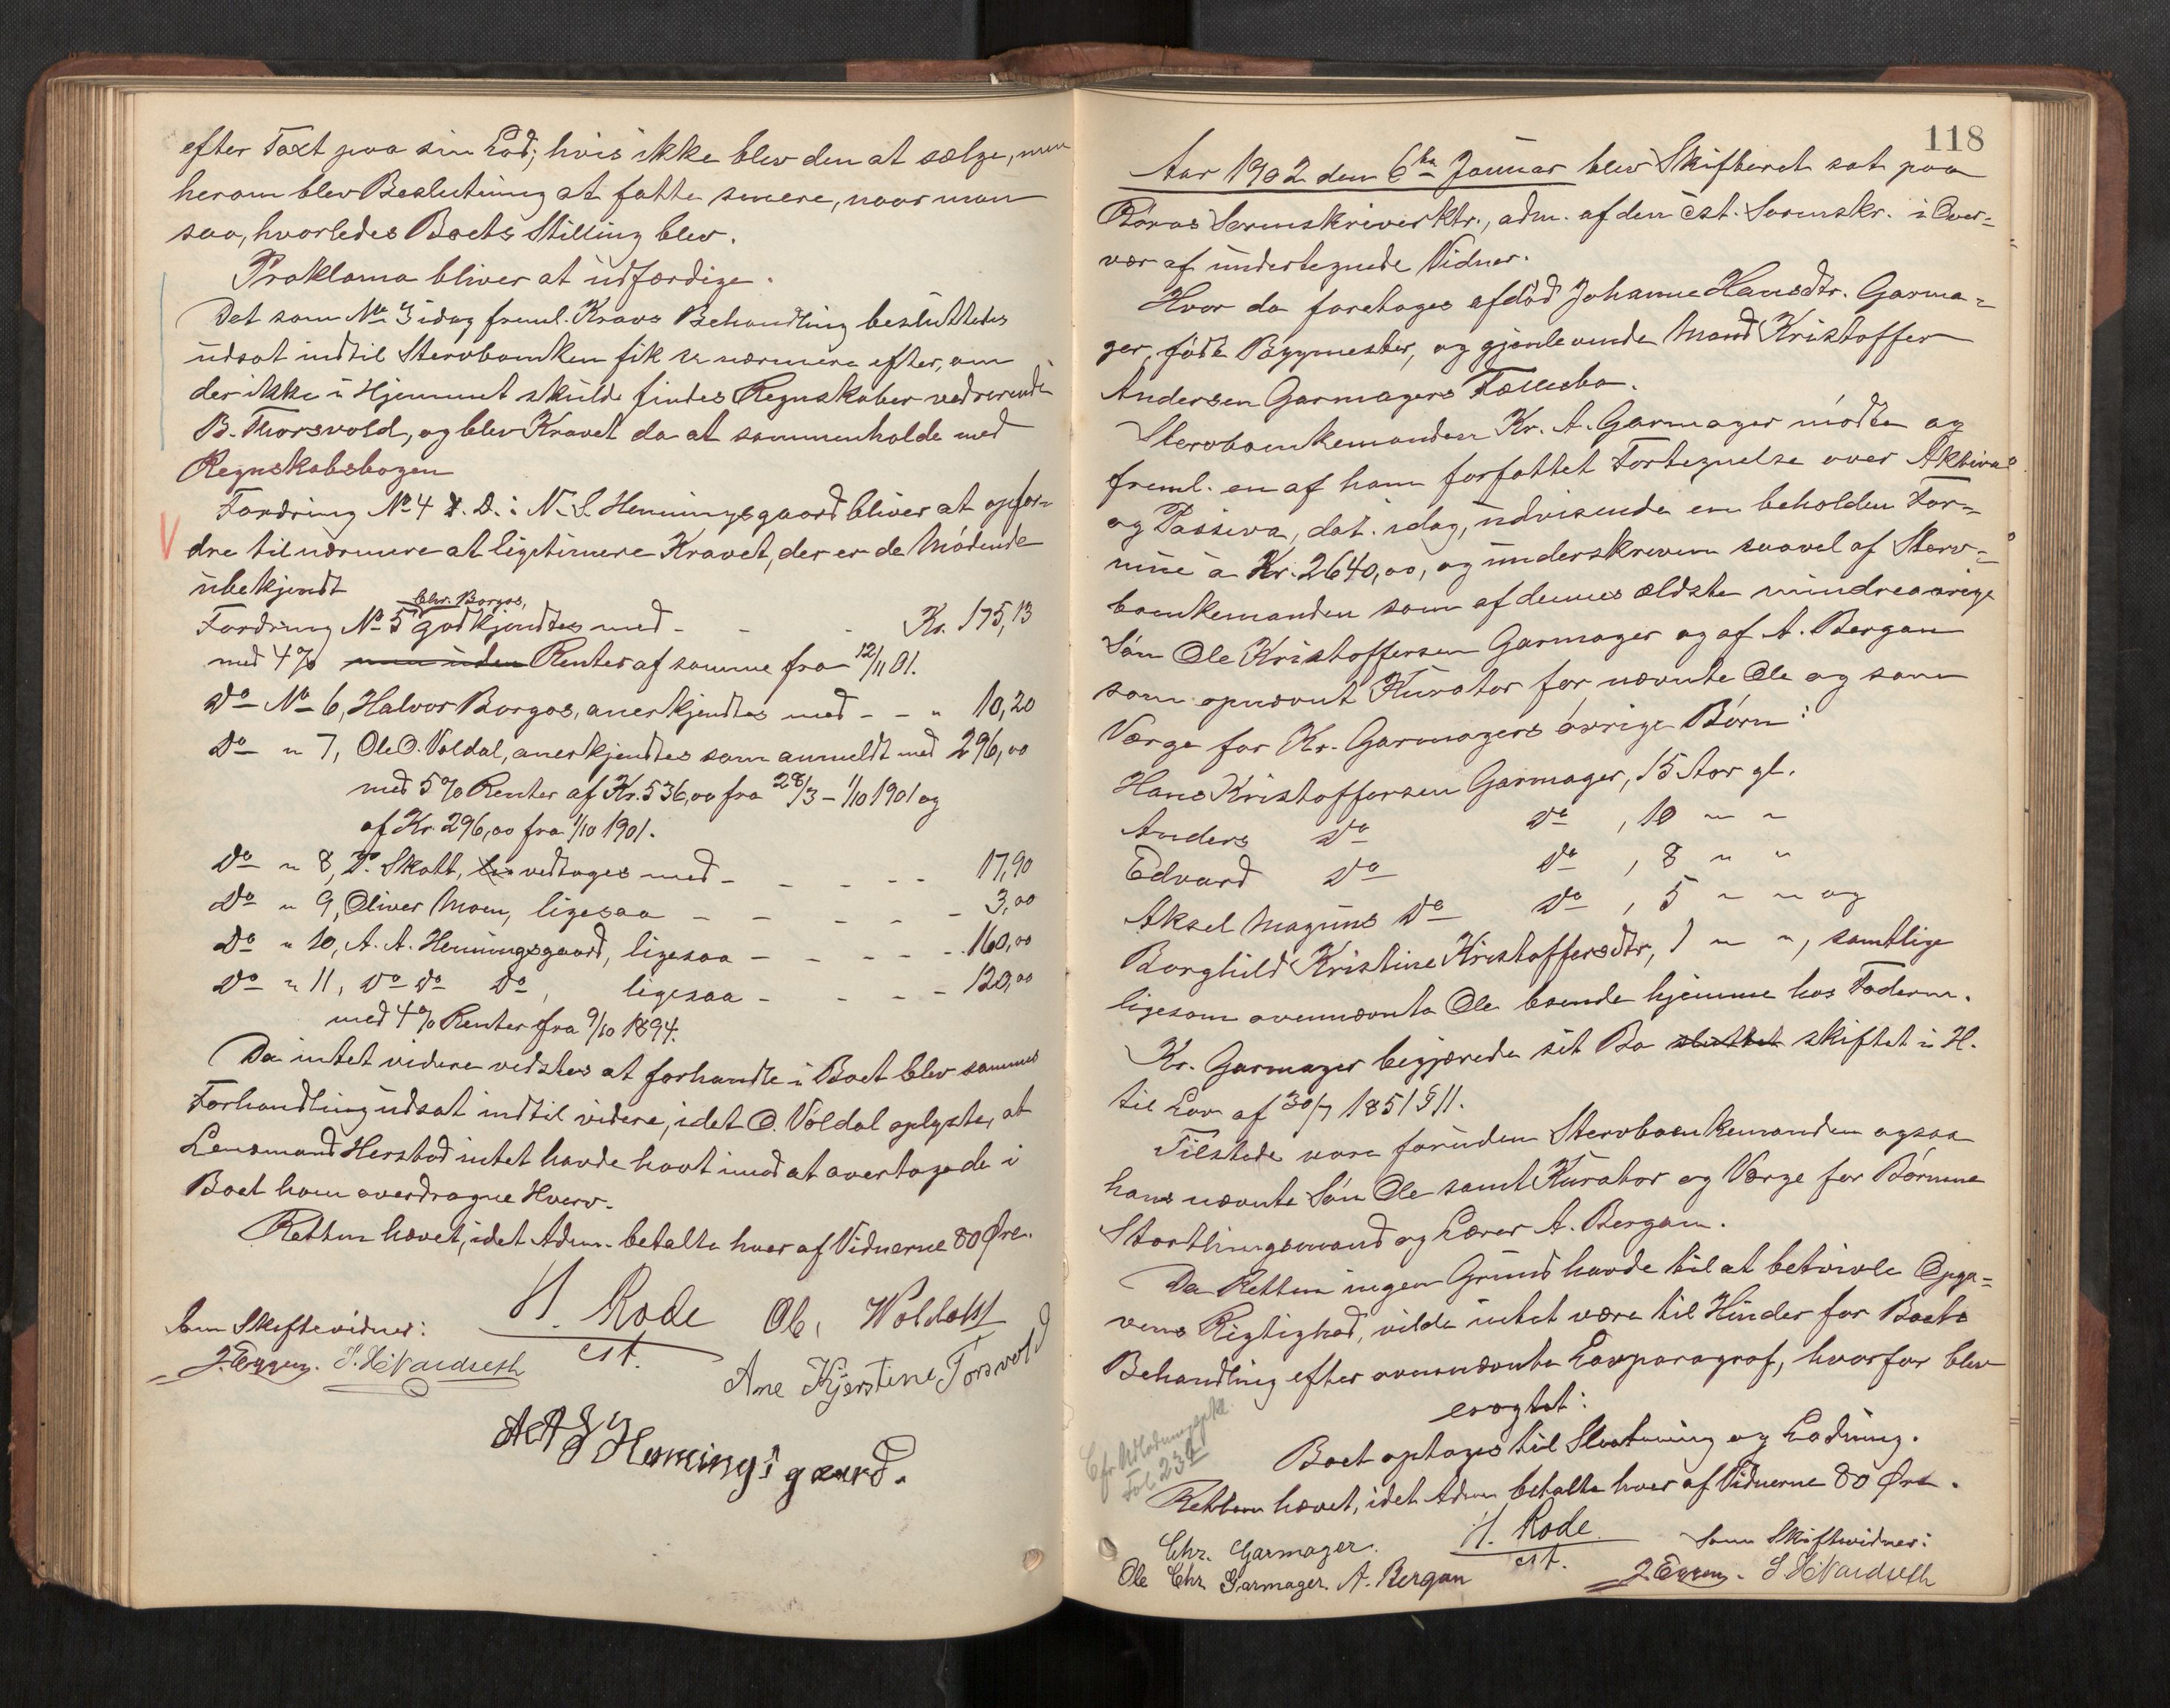 efter Taxt paa sin Lod; hvis ikke blev den at sælge, men
herom blev Beslutning at fatte senere, naar man
saa, hvorledes Boets Stilling blev.
Proklama bliver at udfærdige.
Det som No 3 idag freml. Kravs Behandling besluttedes
udsat indtil Stervboenken fik se nærmere efter, om
der ikke i Hjemmet skulde findes Regnskaber vedrørende
B. Thorsvold, og blev Kravet da at sammenholde med
Regnskabsbogen
Fordring No 4 D. : N. L Henningsgaard bliver at opfor-
dre til nærmere at ligitimere Kravet, der er de Mødende
ubekjendt
Chr. Borgos,
Fordring No 5 godkjendtes med - - - Kr. 175,13
med 4% men uden Renter af samme fra 12/11 01.
Do No 6, Halvor Borgos, anerkjendtes med - - " 10,20
Do " 7, Ole O. Voldal, anerkjendtes som anmeldt med 296,00
med 5% Renter af Kr. 536,00 fra 28/3 - 1/10 1901 og
af Kr. 296,00 fra 1/10 1901.
Do " 8, P. Skott, vedtages med - - - - - 17,90
Do " 9, Oliver Moen, ligesaa - - - - - 3,00
Do " 10, A. A. Henningsgaard, ligesaa - - - - - 160,00
Do " 11, Do Do Do, ligesaa - - - - 120,00
med 4% Renter fra 9/10 1894.
Da intet videre vidstes at forhandle i Boet blev sammes
Forhandling udsat indtil videre, idet O. Voldal oplyste, at
Lensmand Herstad intet havde havt imod at overtage de i
Boet ham overdragne Hverv.
Retten hævet, idet Adm. betalte hver af Vidnerne 80 Øre.
H. Rode
cst.
Ol. Woldahl
Som Skiftevidner:
J. Eggen. S. H. Nardseth
Ane Kjerstine Torsvold
A A Hemingsgaard.
118
Aar 1902 den 6te Januar blev Skifteret sat paa
Røros Sorenskriverktr., adm. af den cst. Sorenskr. i Over-
vær af undertegnede Vidner.
Hvor da foretages afdød Johanne Hansdtr. Garma-
ger, født Byggmester, og gjenlevende Mand Kristoffer
Andersen Garmagers Fællesbo.
Stervboenkemanden Kr. A. Garmager mødte og
freml. en af ham forfattet Fortegnelse over Aktiva
og Passiva, dat. idag, udvisende en beholden For-
mue a Kr. 2640,00, og underskreven saavel af Sterv-
boenkemanden som af dennes ældste mindreaarige
Søn Ole Kristoffersen Garmager og af A. Bergan
som opnævnt Kurator for nævnte Ole og som
Værge for Kr. Garmagers øvrige Børn:
Hans Kristoffersen Garmager, 15 Aar gl.
Anders Do Do, 10 " "
Edvard Do Do, 8 " "
Aksel Magnus Do Do, 5 " " og
Borghild Kristine Kristoffersdtr, 1 " ", samtlige
ligesom ovennævnte Ole boende hjemme hos Faderen.
Kr. Garmager begjærede sit Bo sluttet skiftet i H.
til Lov af 30/7 1851 § 11.
Tilstede vare foruden Stervboenkemanden ogsaa
hans nævnte Søn Ole samt Kurator og Værge for Børnene
Storthingsmand og Lærer A. Bergan.
Da Retten ingen Grund havde til at betvivle Opga-
vens Rigtighed, vilde intet være til Hinder for Boets
Behandling efter ovennævnte Lovparagraf, hvorfor blev
eragtet:
Boet optages til Slutning og Lodning.
Cfr. Udlodningsptkl.
Fol. 232
Retten hævet, idet Adm betalte hver af Vidnerne 80 Øre.
Chr. Garmager.
H. Rode
cst.
Som Skiftevidner:
Ole Chr Garmager. A. Bergan
J. Eggen. S H Nardseth